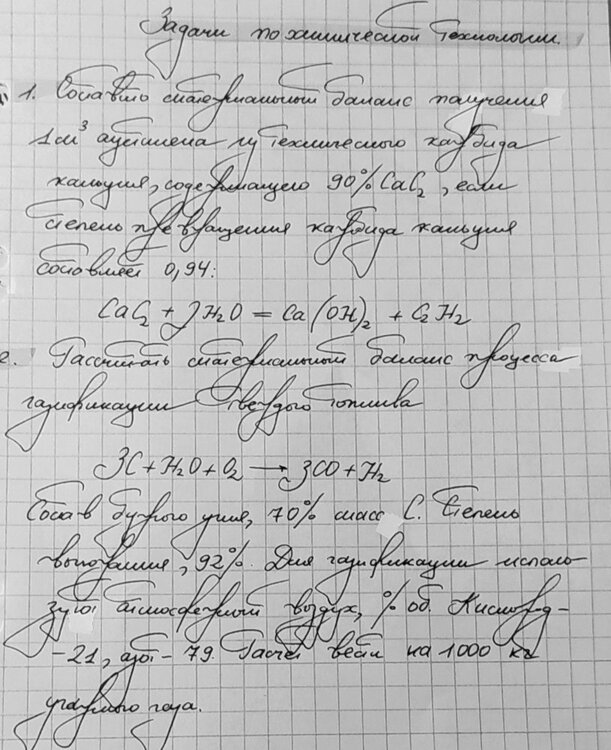 Задачи по химической технологии.
1. Составить материальный баланс получения
1 м³ ацетилена из технического карбида
кальция, содержащего 90% CaC₂, если
степень превращения карбида кальция
составляет 0,94:
CaC₂ + 2H₂O = Ca(OH)₂ + C₂H₂
2. Рассчитать материальный баланс процесса
газификации твердого топлива
3C + H₂O + O₂ → 3CO + H₂
Состав бурого угля, 70% масс C. Степень
выгорания, 92%. Для газификации исполь-
зуют атмосферный воздух, % об. Кислород-
-21, азот - 79. Расчет вести на 1000 кг
угарного газа.